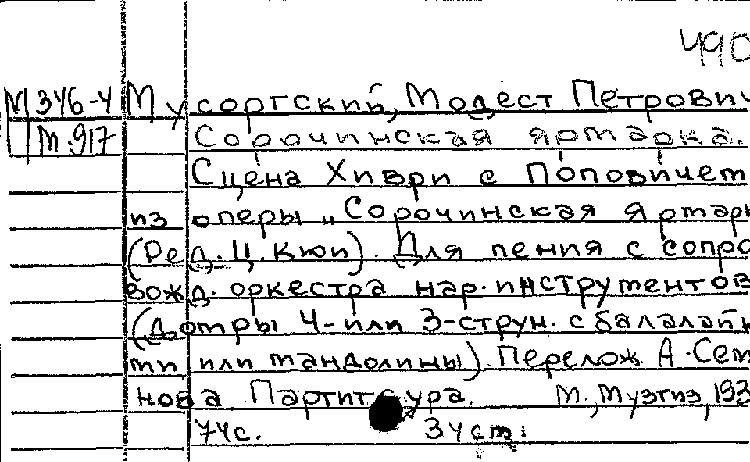 490
М 346-4 Мусоргский, Модест Петрович
m.917 Сорочинская ярмарка.
Сцена Хиври с Поповичем
из оперы „Сорочинская Ярмар
(Ред. Ц. Кюи). Для пения с сопро
вожд. оркестра нар. инструментов
(Домры 4-или 3-струн. с балалайк
ми или мандолины). Перелож А. Сем
нова Партитура. М., Музгиз, 193
74с. 3уст.